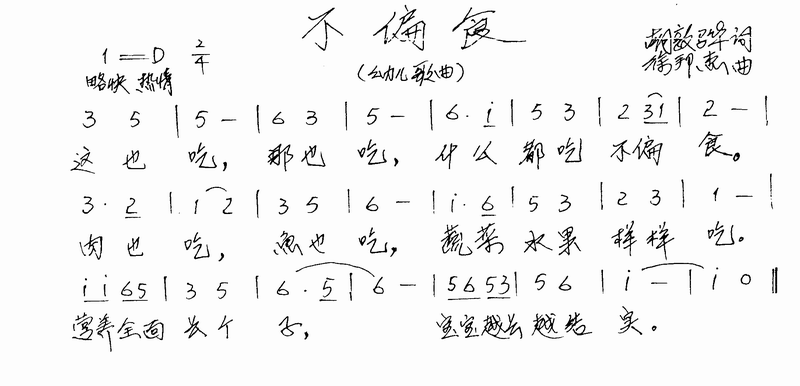 不偏食
(幼儿歌曲)
1=D 2/4
略快 热情
胡敦骅词
徐邦杰曲
3 5 | 5 - | 6 3 | 5 - | 6. i | 5 3 | 2 31 | 2 - |
这也吃,那也吃,什么都吃不偏食。
3. 2 | 1 2 | 3 5 | 6 - | i. 6 | 5 3 | 2 3 | 1 - |
肉也吃,鱼也吃,蔬菜水果样样吃。
i i 65 | 3 5 | 6. 5 | 6 - | 56 53 | 5 6 | i - | i 0 ‖
营养全面长个子,宝宝越长越结实。